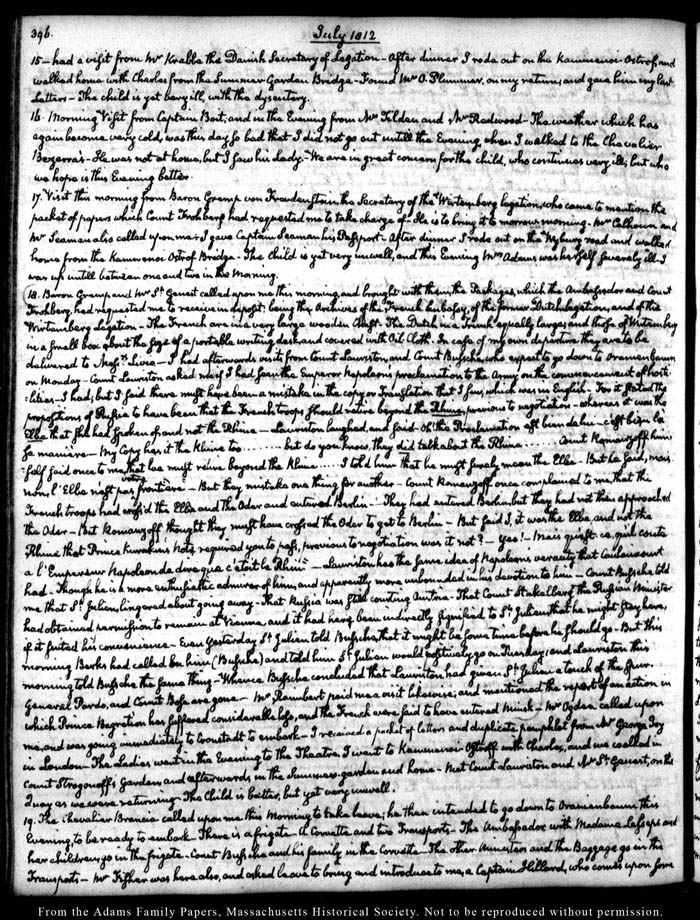 396.
July 1812
15 — had a visit from Mr Krabbe the Danish Secretary of Legation — After dinner I rode out on the Kammenoi Ostrof, and
walked home with Charles from the Summer Garden Bridge — Found Mr O. Plummer, on my return, and gave him my last
Letters — The child is yet very ill, with the dysentery.
16. Morning Visit from Captain Bates, and in the Evening from Mr Tilden and Mr Redwood — The weather which has
again become very cold, was this day so bad that I did not go out untill the Evening, when I walked to the Chevalier
Bezerra's — He was not at home, but I saw his Lady. — We are in great concern for the child, who continues very ill; but who
we hope is this Evening better.
17. Visit this morning from Baron Gremp von Freudenstein, the Secretary of the Wirtemberg legation, who came to mention the
packet of papers which Count Frohberg had requested me to take charge of — He is to bring it to morrow morning. Mr Calhoun and
Mr Seaman also called upon me. I gave Captain Seaman his Passport — After dinner I rode out on the Wyburg road and walked
home from the Kammenoi Ostrof Bridge — The Child is yet very unwell, and this Evening Mrs Adams was herself severely ill — I
was up untill between one and two in the Morning.
18. Baron Gremp and Mr St Genest called upon me this morning, and brought with them the Packages, which the Ambassador and Count
Frohberg, had requested me to receive in deposit; being the Archives of the French Embassy, of the former Dutch Legation, and of the
Wirtemberg Legation — The French are in a very large wooden Chest — The Dutch in a Trunk equally large; and those of Wirtemberg
in a small box about the size of a portable writing desk, and covered with Oil Cloth. In case of my own departure they are to be
delivered to Messrs Livio — I had afterwards visits from Count Lauriston, and Count Bussche, who expect to go down to Oranienbaum
on Monday — Count Lauriston asked me if I had seen the Emperor Napoleon's proclamation to the Army on the commencement of hosti-
lities — I had; but I said there must have been a mistake in the copy or Translation that I saw, which was in English — For it stated the
propositions of Russia to have been that the French troops should retire beyond the Rhine, previous to negotiation — whereas it was the
Elbe that she had spoken of and not the Rhine — Lauriston laughed, and said — oh! the Proclamation est bien de lui — c'est bien là
sa manière — My Copy has it the Rhine too . . . . . . but do you know they did talk about the Rhine . . . . . Count Romanzoff him-
self said once to me that we must retire beyond the Rhine . . . . I told him that he must surely mean the Elbe — But he said, mais
non, l'Elbe n'est pas votre frontière — But they mistake one thing for another — Count Romanzoff once complained to me that the
French troops had cross'd the Elbe and the Oder and entered Berlin — They had entered Berlin but they had not then approached
the Oder — But Romanzoff, thought they must have crossed the Oder to get to Berlin — But said I, it was the Elbe, and not the
Rhine that Prince Kurakin's Note, required you to pass, previous to negotiation was it not? — Yes! — Mais qu'est-ce qu'il coute
à l'Empereur Napoleon de dire que c'étoit le Rhin — Lauriston has the same idea of Napoleon's veracity that Caulaincourt
had — Though he is a more enthusiastic admirer of him, and apparently more unbounded in his devotion to him — Count Bussche told
me that St Julien, lingered about going away — That Russia was still courting Austria — That Count Stakelberg the Russian Minister
had obtained permission to remain at Vienna, and it had been indirectly signified to St Julien that he might stay here,
if it suited his convenience — Even yesterday St Julien told Bussche, that it might be some time before he should go — But this
morning Berks had called on him (Bussche) and told him St Julien would positively go on Tuesday; and Lauriston this
morning told Bussche the same thing — Whence Bussche concluded that Lauriston had given St Julien a touch of the spur.
General Pardo, and Count Bose are gone — Mr Raimbert paid me a visit likewise; and mentioned the report of an action in
which Prince Bagration has suffered considerable loss, and the French were said to have entered Minsk — Mr Ogden called upon
me, and was going immediately to Cronstadt to embark — I received a packet of letters and duplicate pamphlet from Mr George Joy
in London — The Ladies went in the Evening to the Theatre. I went to Kammenoi Ostroff with Charles, and we walked in
Count Strogonoff's Garden and afterwards in the Summer-garden and home — Met Count Lauriston and Mr St Genest, on the
Quay as we were returning — The Child is better, but yet very unwell.
19. The Chevalier Brancia called upon me this Morning to take leave; he then intended to go down to Oranienbaum this
Evening, to be ready to embark — There is a frigate — A Corvette and two Transports — The Ambassador with Madame Lesseps and
her children, go in the frigate — Count Bussche and his family in the Corvette — The other Ministers and the Baggage go in the
Transports — Mr Fisher was here also, and asked leave to bring and introduce to me, a Captain Hilliard, who comes upon some
From the Adams Family Papers, Massachusetts Historical Society. Not to be reproduced without permission.